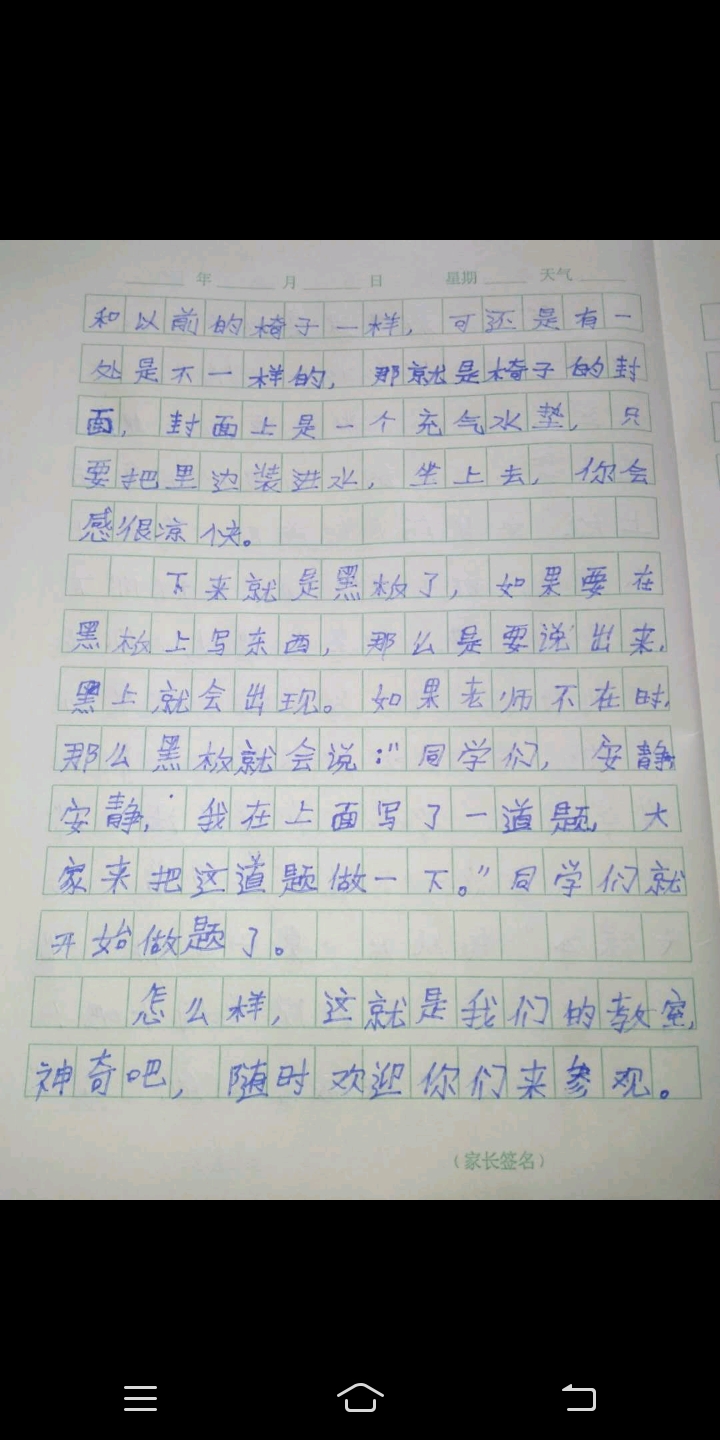 年 月 日 星期 天气
和以前的椅子一样，可还是有一
处是不一样的，那就是椅子的封
面，封面上是一个充气水垫，只
要把里边装进水，坐上去，你会
感很凉快。
下来就是黑板了，如果要在
黑板上写东西，那么是要说出来，
黑上就会出现。如果老师不在时，
那么黑板就会说：“同学们，安静
安静，我在上面写了一道题，大
家来把这道题做一下。”同学们就
开始做题了。
怎么样，这就是我们的教室，
神奇吧，随时欢迎你们来参观。
（家长签名）